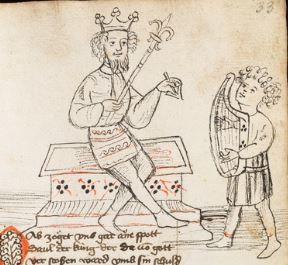 33
Ab zoget vns gar ain spott
Saul der kung der do vō gott
ver stossen ward vmb sin schuld